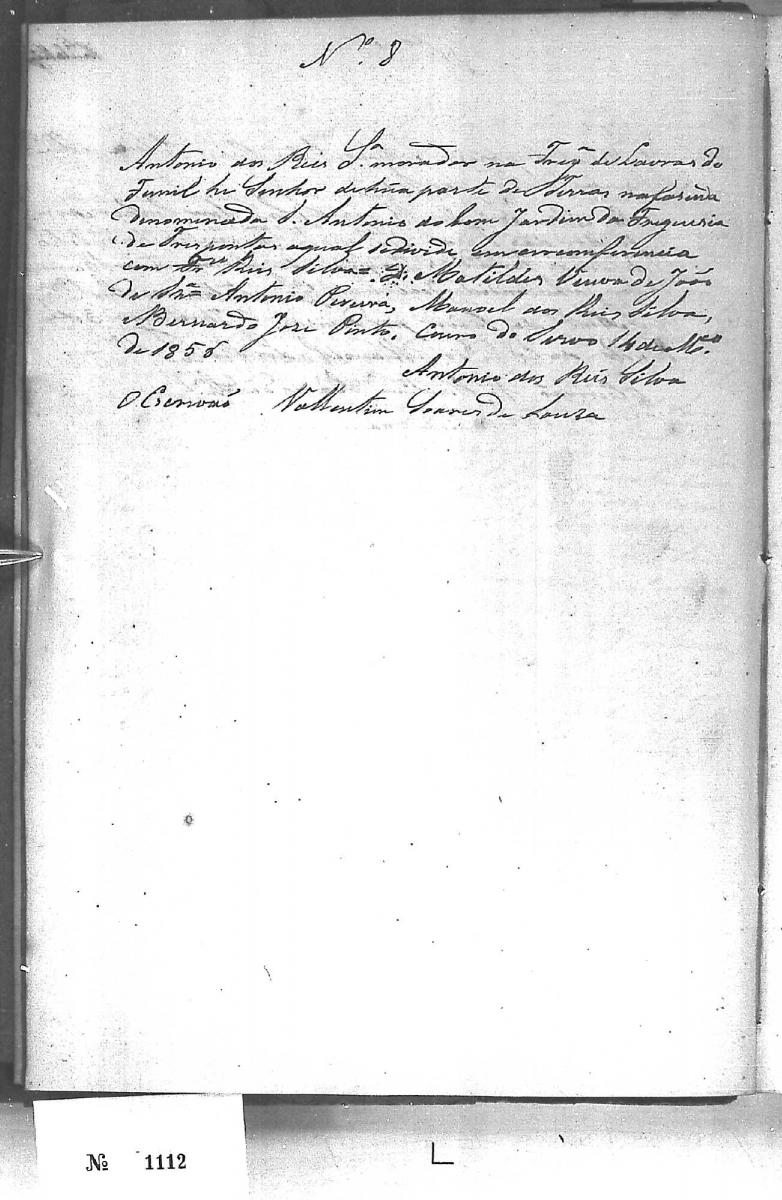 N.º 8
Antonio dos Reis S.ª morador na Freg.ª de Lavras do
Funil he Senhor de hũa parte de Terras na fasenda
denomenada S. Antonio do bom Jardim da Freguesia
de Trespontas aqual sedivide em circomferencia
com Fr.co Reis Silva = D. Matildes Viuva de João
de Sz.ª Antonio Pereira, Manoel dos Reis Silva,
Bernardo Jose Pinto. Couro do Servo 14 de
de 1856
Antonio dos Reis Silva
O Escrivaõ Vallentim Soares de Souza
№ 1112